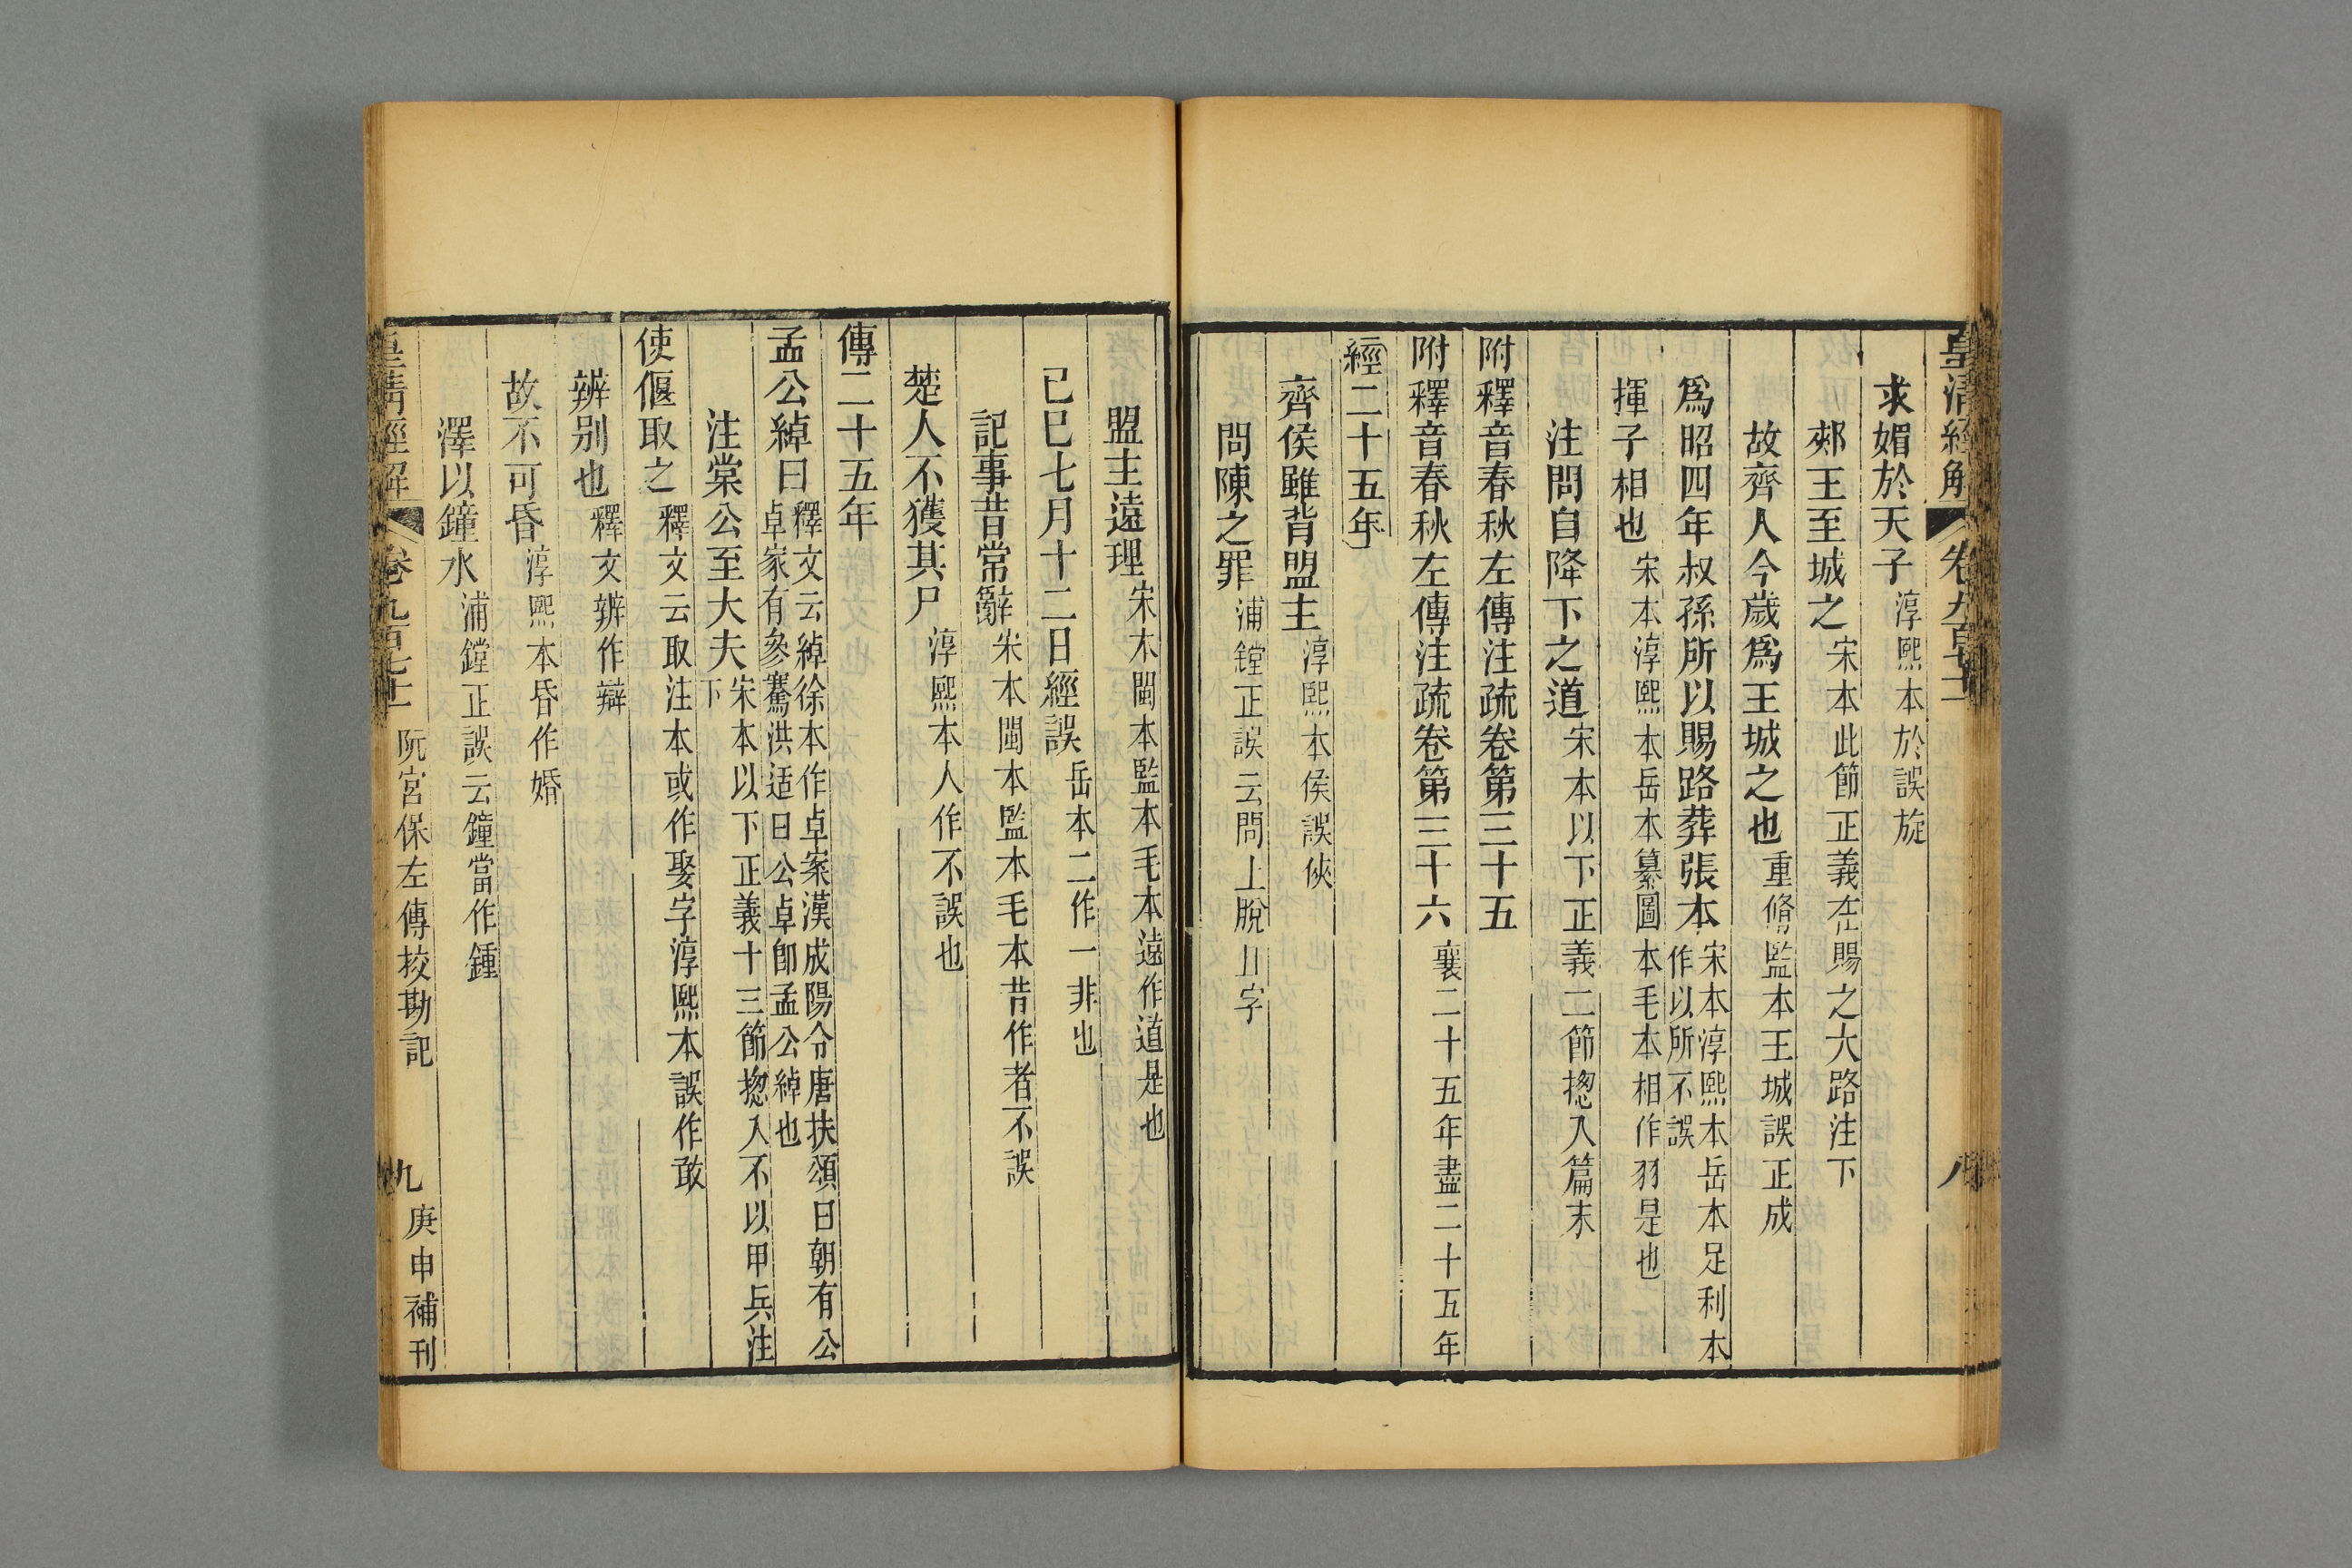 皇清經解 卷九百七十二 八
求媚於天子淳熙本於誤旋
郟王至城之宋本此節正義在賜之大路注下
故齊人今歲爲王城之也重脩監本王城誤正成
爲昭四年叔孫所以賜路葬張本宋本淳熙本岳本足利本作以所不誤
揮子相也宋本淳熙本岳本纂圖本毛本相作羽是也
注問自降下之道宋本以下正義二節揔入篇末
附釋音春秋左傳注疏卷第三十五
附釋音春秋左傳注疏卷第三十六襄二十五年盡二十五年
經二十五年
齊侯雖背盟主淳熙本侯誤俠
問陳之罪浦鏜正誤云問上脫且字
盟主遠理宋本閩本監本毛本遠作道是也
己巳七月十二日經誤岳本二作一非也
記事昔常辭宋本閩本監本毛本昔作者不誤
楚人不獲其尸淳熙本人作不誤也
傳二十五年
孟公綽曰釋文云綽徐本作卓案漢成陽令唐扶頌曰朝有公卓家有參騫洪适曰公卓卽孟公綽也
注棠公至大夫宋本以下正義十三節揔入不以甲兵注下
使偃取之釋文云取注本或作娶字淳熙本誤作敢
辨別也釋文辨作辯
故不可昏淳熙本昏作婚
澤以鐘水浦鏜正誤云鐘當作鍾
皇清經解 卷九百七十二 阮宮保左傳挍勘記 九 庚申補刊